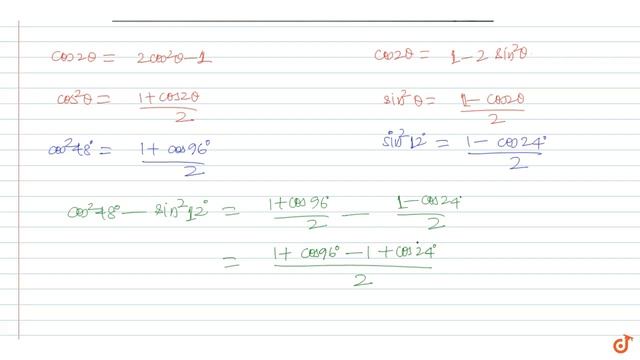 cos2θ = 2cos²θ-1
cos2θ = 1-2 sin²θ
cos²θ = 1+cos2θ/2
sin²θ = 1-cos2θ/2
cos²48° = 1+cos96°/2
sin²12° = 1-cos24°/2
cos²48° - sin²12° = 1+cos96°/2 - 1-cos24°/2
= 1+cos96°-1+cos24°/2